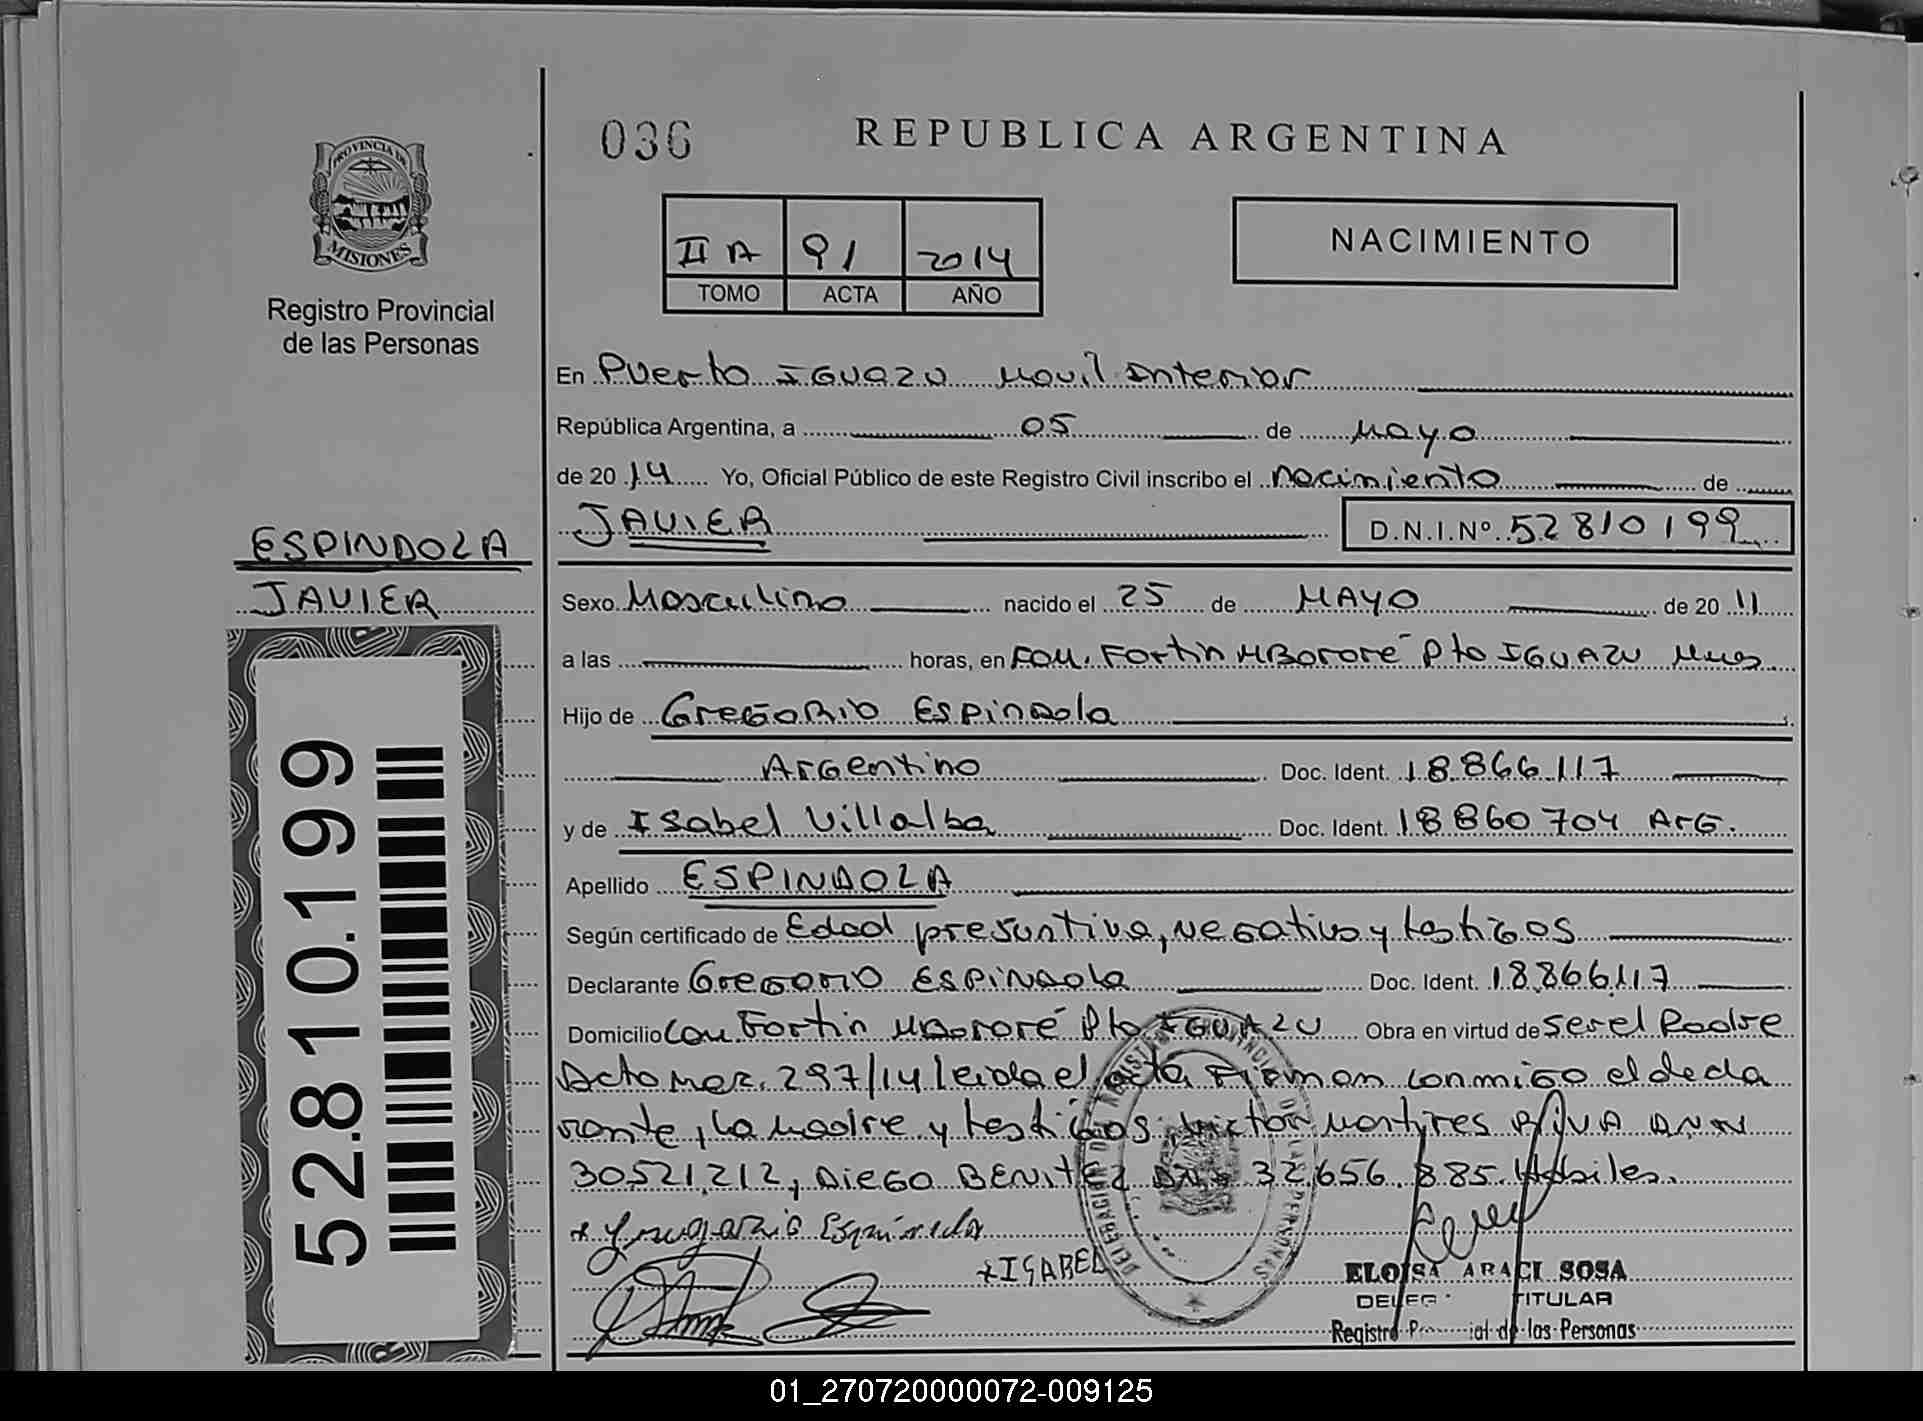 036
REPUBLICA ARGENTINA
PROVINCIA DE
MISIONES
Registro Provincial
de las Personas
II A 91 2014
TOMO ACTA AÑO
NACIMIENTO
En Puerto IGUAZU Movil Interior
República Argentina, a 05 de Mayo
de 2014 Yo, Oficial Público de este Registro Civil inscribo el nacimiento de
JAVIER D.N.I.Nº 52810199
ESPINDOLA
JAVIER
Sexo Masculino nacido el 25 de MAYO de 2011
a las horas, en COM. Fortin MBororé Pto IGUAZU Mnes
Hijo de GREGORIO ESPINDola
ArGentino Doc. Ident. 18.866.117
y de Isabel Villalba Doc. Ident. 18860704 ArG.
Apellido ESPINDOLA
Según certificado de Edad presuntiva, neGativo y testiGos
Declarante GreGorio ESPINDola Doc. Ident. 18.866.117
Domicilio Com. Fortin MBororé Pto IGUAZU Obra en virtud de ser el Padre
Acto 297/14 leida el acta Firman conmiGo el decla
rante, la madre y testiGos Victor Martires
30521212, DieGo BENITEZ 32.656.885. Habiles.
Espíndola
+ISABEL
ELOISA ARACI SOSA
TITULAR
Registro de las Personas
52.810.199
01_270720000072-009125